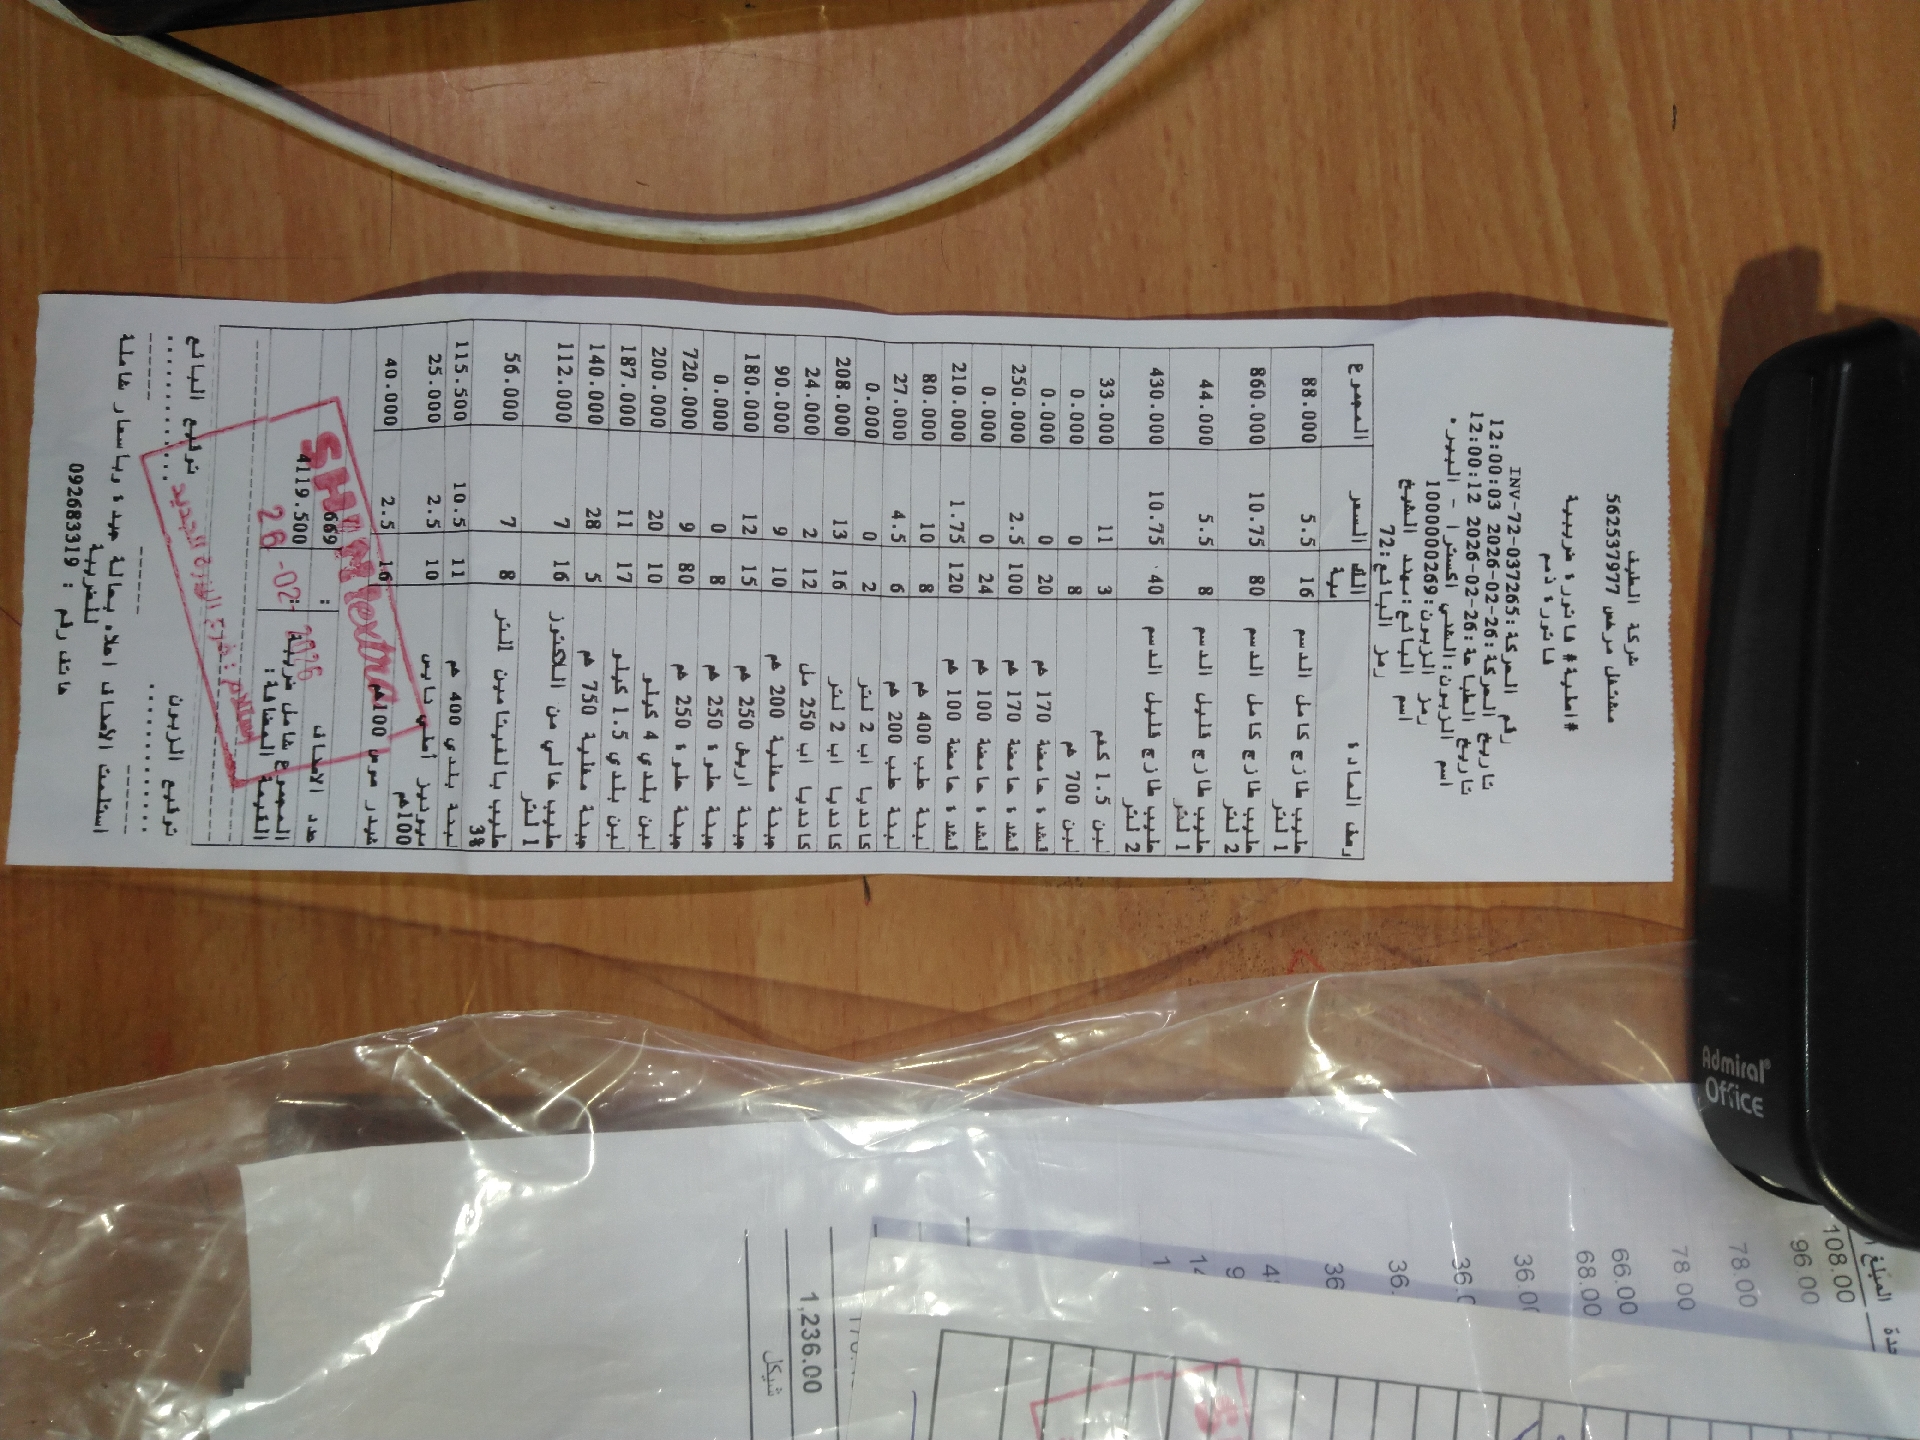 شركة الطيف
مشتغل مرخص 562537977
#اصلية# فاتورة ضريبية
فاتورة ذمم
رقم الحركة: INV-72-037265
تاريخ الحركة: 26-02-2026 12:00:03
تاريخ الطباعة: 26-02-2026 12:00:12
اسم الزبون: الشني اكسترا - البيره
رمز الزبون: 1000000269
اسم البائع: مهند الشيخ
رمز البائع: 72
وصف المادة الكمية السعر المجموع
حليب طازج كامل الدسم 1 لتر 16 5.5 88.000
حليب طازج كامل الدسم 2 لتر 80 10.75 860.000
حليب طازج قليل الدسم 1 لتر 8 5.5 44.000
حليب طازج قليل الدسم 2 لتر 40 10.75 430.000
لبن 1.5 كغم 3 11 33.000
لبن 700 غم 8 0 0.000
قشدة حامضة 170 غم 20 0 0.000
قشدة حامضة 170 غم 100 2.5 250.000
قشدة حامضة 100 غم 24 0 0.000
قشدة حامضة 100 غم 120 1.75 210.000
لبنة طب 400 غم 8 10 80.000
لبنة طب 200 غم 6 4.5 27.000
كانديا اب 2 لتر 2 0 0.000
كانديا اب 2 لتر 16 13 208.000
كانديا اب 250 مل 12 2 24.000
جبنة مغلية 200 غم 10 9 90.000
جبنة اريش 250 غم 15 12 180.000
جبنة حلوة 250 غم 8 0 0.000
جبنة حلوة 250 غم 80 9 720.000
لبن بلدي 4 كيلو 10 20 200.000
لبن بلدي 1.5 كيلو 17 11 187.000
جبنة مغلية 750 غم 5 28 140.000
حليب خالي من اللاكتوز 1 لتر 16 7 112.000
حليب بالفيتامين التر 3% 8 7 56.000
لبنة بلدي 400 غم 11 10.5 115.500
سيونيز أصلي نايس 100غم 10 2.5 25.000
شيدر موس 100غم 16 2.5 40.000
عدد الاصناف : 669
المجموع شامل ضريبة القيمة المضافة: 4119.500
SHINI extra
26 -02- 2026
إستلام : فرع البيرة الجديد
توقيع الزبون توقيع البائع
استلمت الأصناف اعلاه بحالة جيدة وباسعار شاملة للضريبة
هاتف رقم : 092683319
Admiral
Office
المبلغ
108.00
96.00
78.00
78.00
66.00
68.00
36.00
1,236.00
شيكل